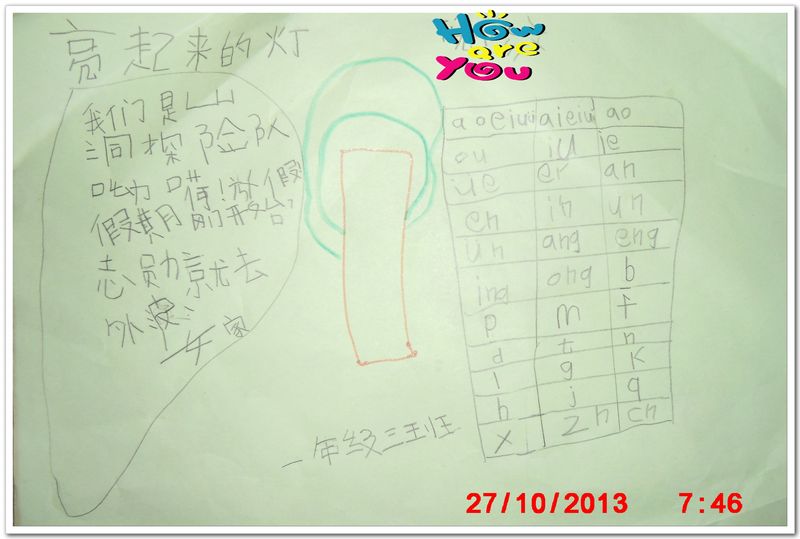 亮起来的灯
How
are
You
我们是山
洞探险队
呦嗬!放假
假期刚开始
志勋就去
外婆家
a o e i u ü ai ei ui ao
ou iu ie
üe er an
en in un
ün ang eng
ing ong b
p m f
d t n
l g k
h j q
x zh ch
一年级三班
27/10/2013 7:46